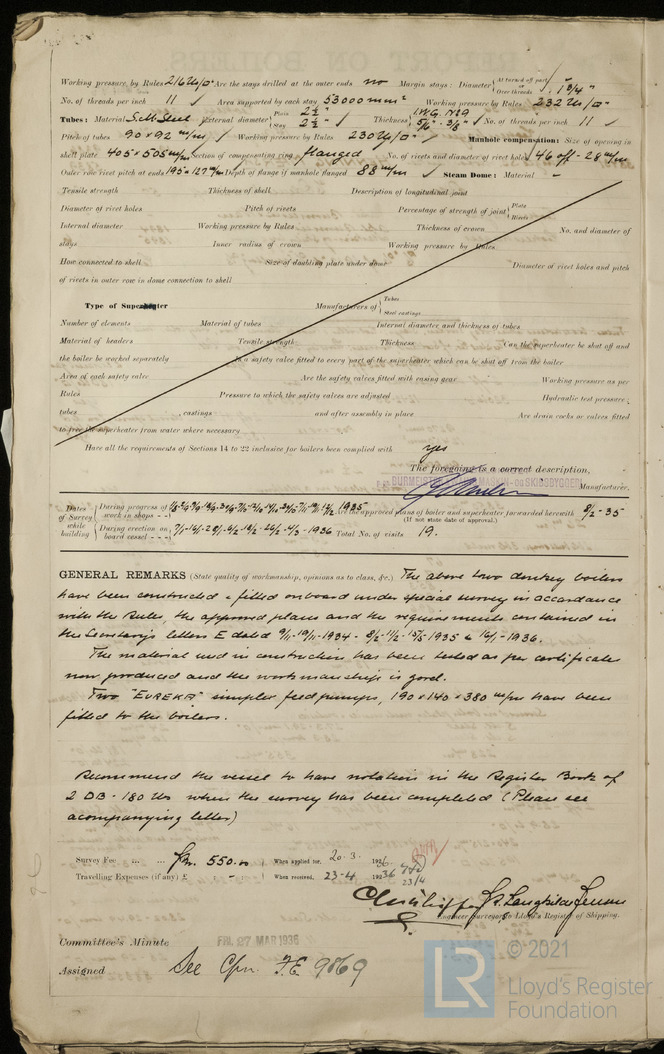 Working pressure by Rules 216 lb/□" Are the stays drilled at the outer ends no Margin stays: Diameter { At turned off part, Over threads 1 3/4"
No. of threads per inch 11 ✓ Area supported by each stay 53000 mm² Working pressure by Rules 232 lb/□"
Tubes: Material S.M. Steel External diameter { Plain 2 1/2" Stay 2 1/2" Thickness { I.W.G. No 9 5/16" - 3/8" ✓ No. of threads per inch 11 ✓
Pitch of tubes 90 x 92 m/m ✓ Working pressure by Rules 230 lb/□" Manhole compensation: Size of opening in
shell plate 405 x 505 m/m Section of compensating ring flanged No. of rivets and diameter of rivet holes 46 off - 28 m/m
Outer row rivet pitch at ends 195 & 127 m/m Depth of flange if manhole flanged 88 m/m ✓ Steam Dome: Material -
Tensile strength Thickness of shell Description of longitudinal joint
Diameter of rivet holes Pitch of rivets Percentage of strength of joint { Plate Rivets
Internal diameter Working pressure by Rules Thickness of crown No. and diameter of
stays Inner radius of crown Working pressure by Rules
How connected to shell Size of doubling plate under dome Diameter of rivet holes and pitch
of rivets in outer row in dome connection to shell
Type of Superheater Manufacturers of { Tubes Steel castings
Number of elements Material of tubes Internal diameter and thickness of tubes
Material of headers Tensile strength Thickness Can the superheater be shut off and
the boiler be worked separately Is a safety valve fitted to every part of the superheater which can be shut off from the boiler
Area of each safety valve Are the safety valves fitted with easing gear Working pressure as per
Rules Pressure to which the safety valves are adjusted Hydraulic test pressure:
tubes , castings and after assembly in place Are drain cocks or valves fitted
to free the superheater from water where necessary
Have all the requirements of Sections 14 to 22 inclusive for boilers been complied with yes
The foregoing is a correct description,
BURMEISTER MASKIN- OG SKIBSBYGGERI Manufacturer.
Dates of Survey while building { During progress of work in shops - - 1935 Are the approved plans of boiler and superheater forwarded herewith 8/2-35
(If not state date of approval.)
During erection on board vessel - - - 7/1-16/1-28/1-5/2-18/2-26/2-4/3-1936 Total No. of visits 19.
GENERAL REMARKS (State quality of workmanship, opinions as to class, &c.) The above two donkey boilers
have been constructed & fitted onboard under special survey in accordance
with the Rules, the approved plans and the requirements contained in
the Secretary's letters E dated 9/11-19/11-1934 - 8/2-11/2-15/5-1935 & 16/1-1936.
The material used in construction has been tested as per certificate
now produced and the workmanship is good.
Two "EUREKA" simplex feed pumps, 190 x 140 x 380 m/m have been
fitted to the boilers.
Recommend the vessel to have notation in the Register Book of
2 DB - 180 lbs when the survey has been completed (Please see
acompanying letter)
Survey Fee ... ... Kr. 550.00 When applied for, 20.3. 1936.
Travelling Expenses (if any) £ : - : When received, 23-4 1936
23/4
Engineer Surveyor to Lloyd's Register of Shipping.
Committee's Minute FRI. 27 MAR 1936
Assigned See Cpn. F.E. 9869
© 2021
LR
Lloyd's Register
Foundation